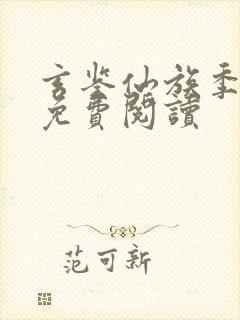 玄鉴仙族季
免費閱讀
范可新